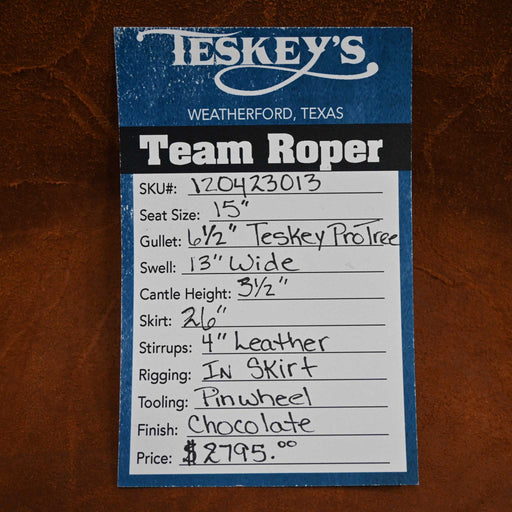 TESKEY'S
WEATHERFORD, TEXAS
Team Roper
SKU#: 120423013
Seat Size: 15"
Gullet: 6½" Teskey ProTree
Swell: 13" Wide
Cantle Height: 3½"
Skirt: 26"
Stirrups: 4" Leather
Rigging: In Skirt
Tooling: Pinwheel
Finish: Chocolate
Price: $2795.00